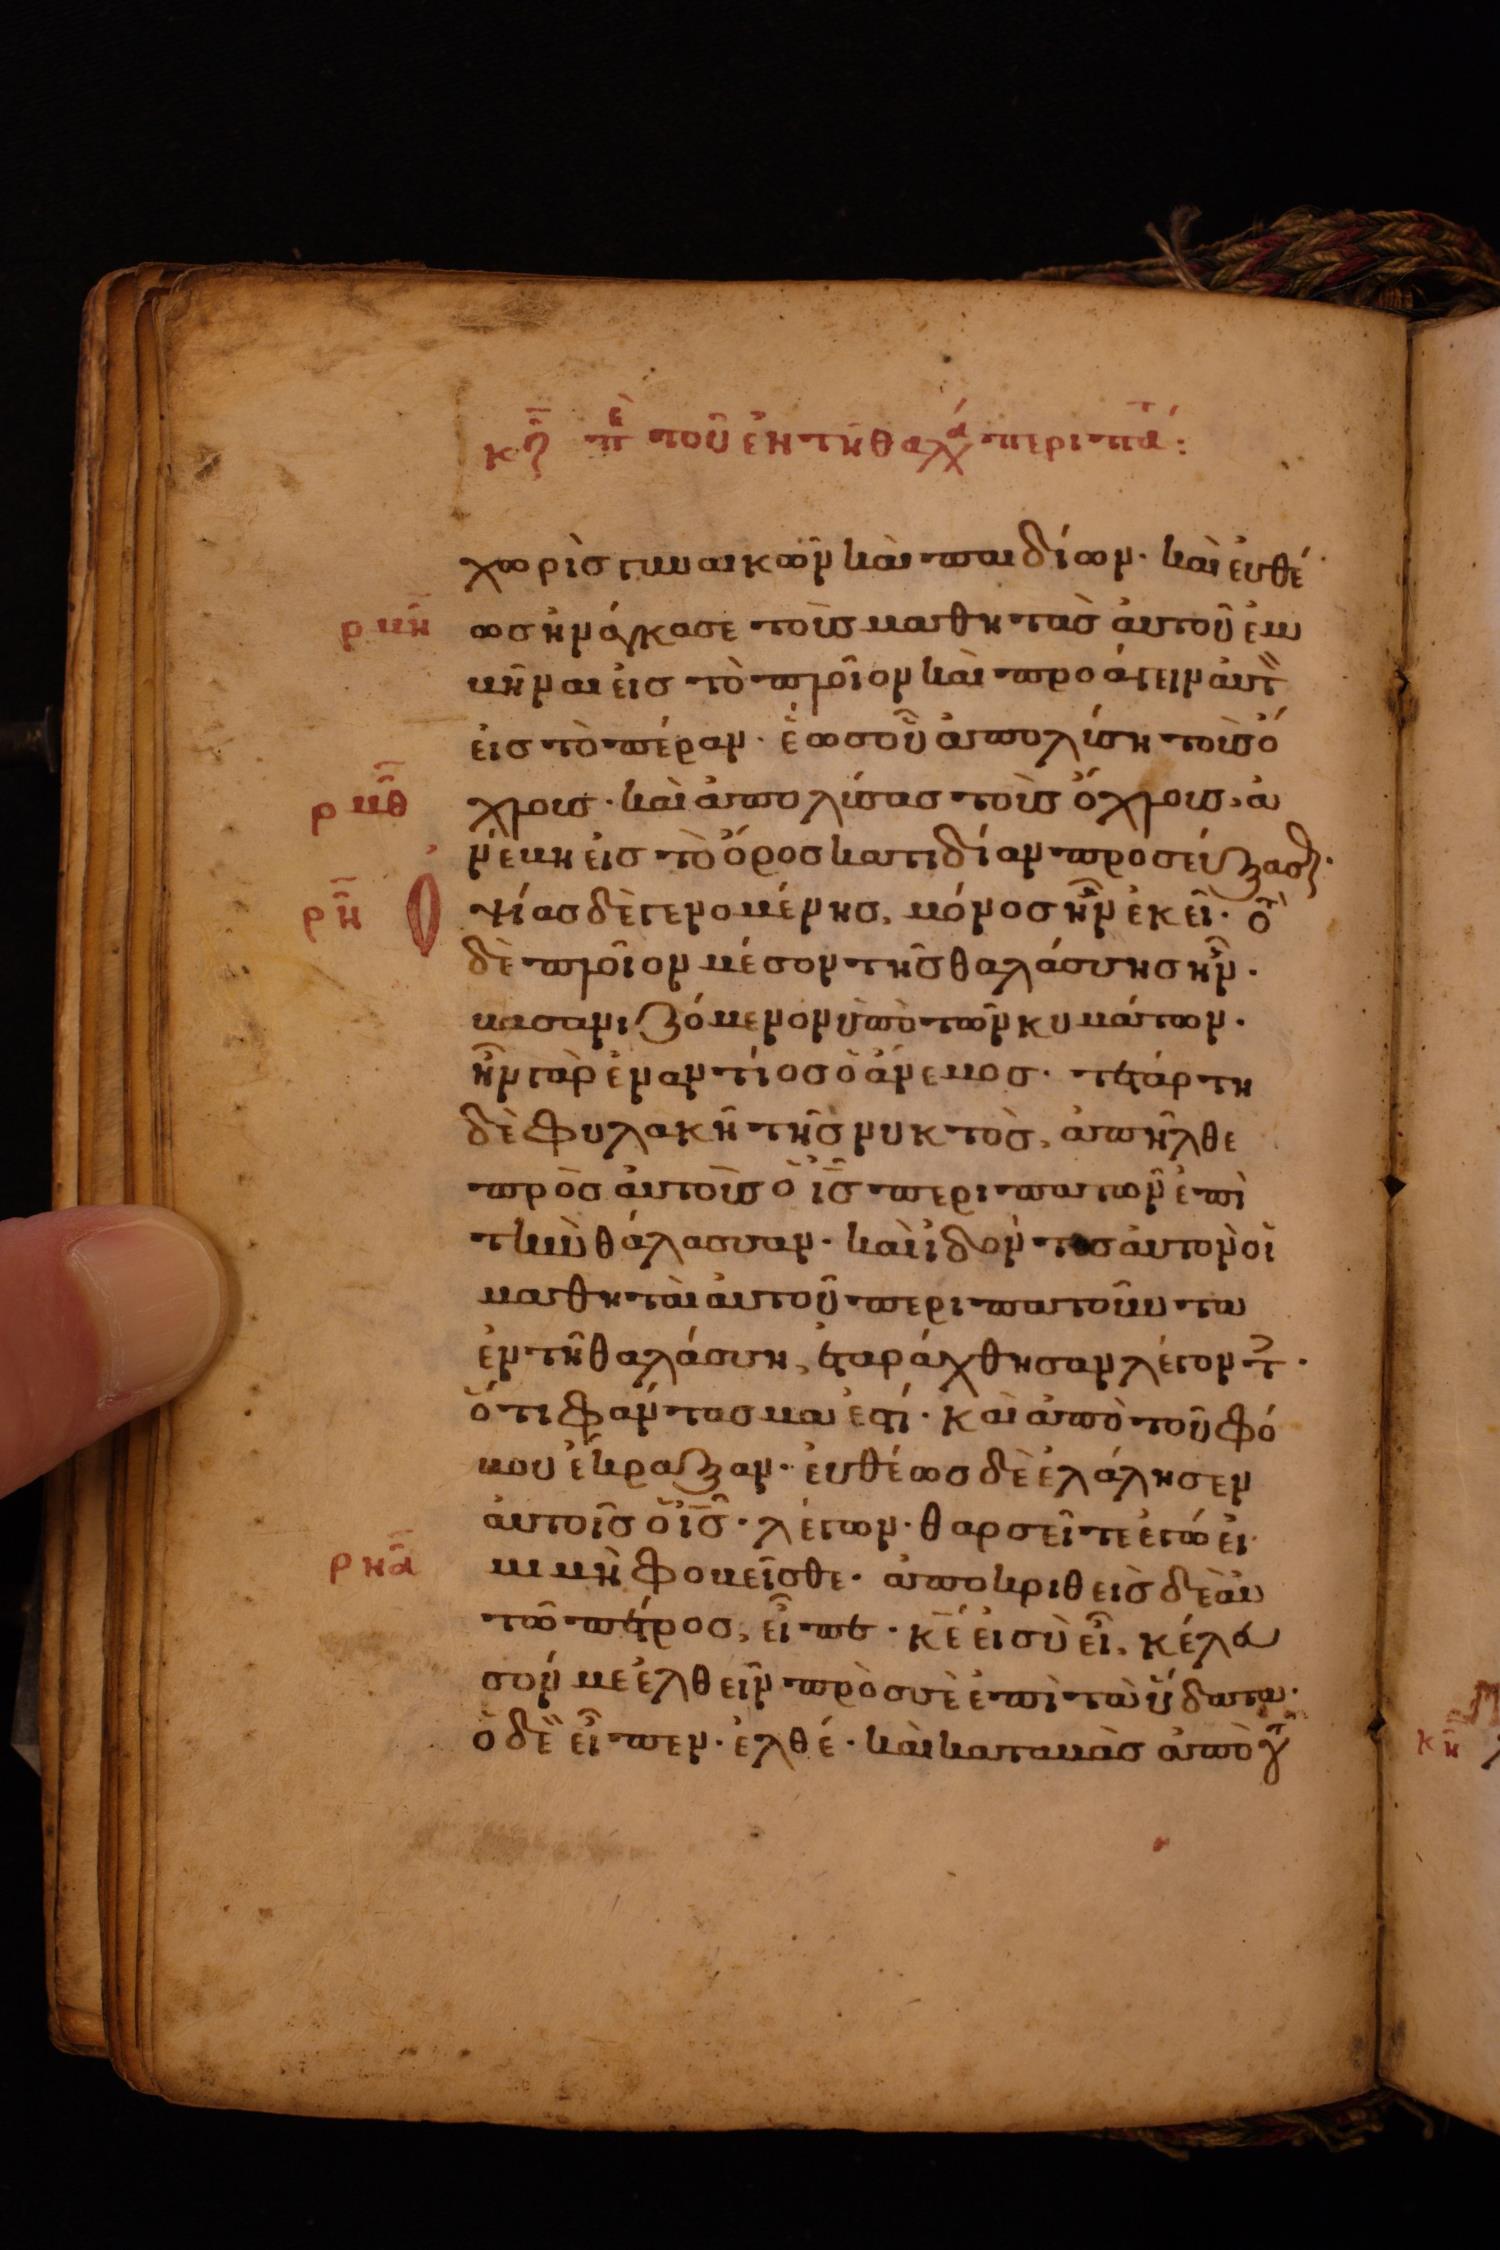 κϛ̄ π̅ὲ τοῦ ἐν τῆ θαλ̀ά περιπά̅τ :
χωρὶς γυναικῶν καὶ παιδίων· καὶ ἐυθέ
ρμη̅ ως ἠνάγκασε τοὺς μαθητὰς ἀυτοῦ ἐμ
βῆναι εἰς τὸ πλοῖον καὶ προάγειν ἀυτ̀
εἰς τὸ πέραν· ἕως οὗ ἀπολύση τοὺς ὄ
ρμθ̅ χλους· καὶ ἀπολύσας τοὺς ὄχλους, ἀ
νέβη εἰς τὸ ὄρος κατιδίαν προσεύξασθ·
ρν̅ Ὀψίας δὲ γενομένης, μόνος ἦν ἐκεῖ· τὸ
δὲ πλοῖον μέσον τῆς θαλάσσης ἦν·
βασανιζόμενον ὑπὸ τῶν κυμάτων·
ἦν γὰρ ἐναντίος ὁ ἄνεμος· τετάρτη
δὲ φυλακῆ τῆς νυκτὸς, ἀπῆλθε
πρὸς ἀυτοὺς ὁ ι̅ς̅ περιπατῶν ἐπὶ
τὴν θάλασσαν· καὶ ἰδόντες ἀυτὸν οἱ
μαθηταὶ ἀυτοῦ περιπατοῦντα
ἐν τῆ θαλάσση, ἐταράχθησαν λέγοντ·
ὅτι φάντασμα ἐστί· καὶ ἀπὸ τοῦ φό
βου ἔκραξαν· ἐυθέως δὲ ἐλάλησεν
ἀυτοῖς ὁ ι̅ς̅· λέγων· θαρσεῖτε ἐγώ εἰ
ρνα̅ μι μὴ φοβεῖσθε· ἀποκριθεὶς δὲ ἀυ
τῶ πέτρος, εἶπε· κ̅ε̅ εἰ σὺ εἶ, κέλευ
σόν με ἐλθεῖν πρὸς σὲ ἐπὶ τὰ ὕδατα·
ὁ δὲ εἶπεν· ἐλθέ· καὶ καταβὰς ἀπὸ τ